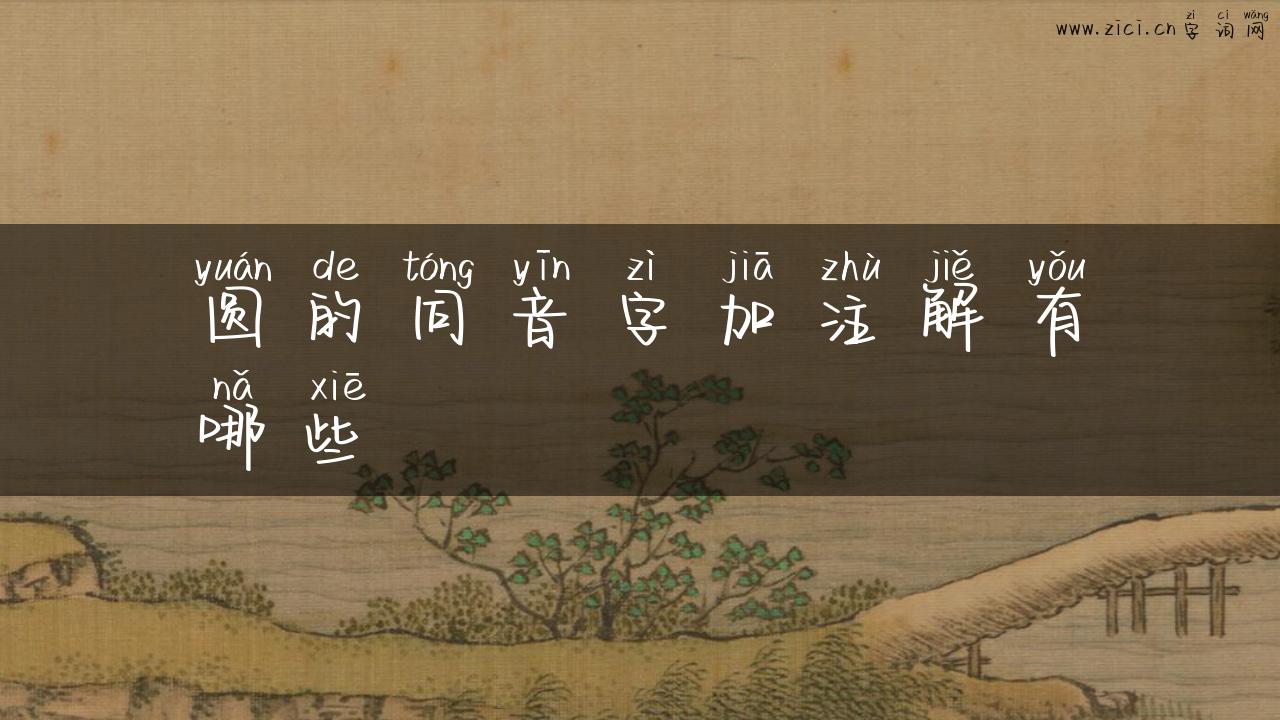 zì cí wǎng
www.zici.cn 字 词 网
yuán de tóng yīn zì jiā zhù jiě yǒu
圆 的 同 音 字 加 注 解 有
nǎ xiē
哪 些